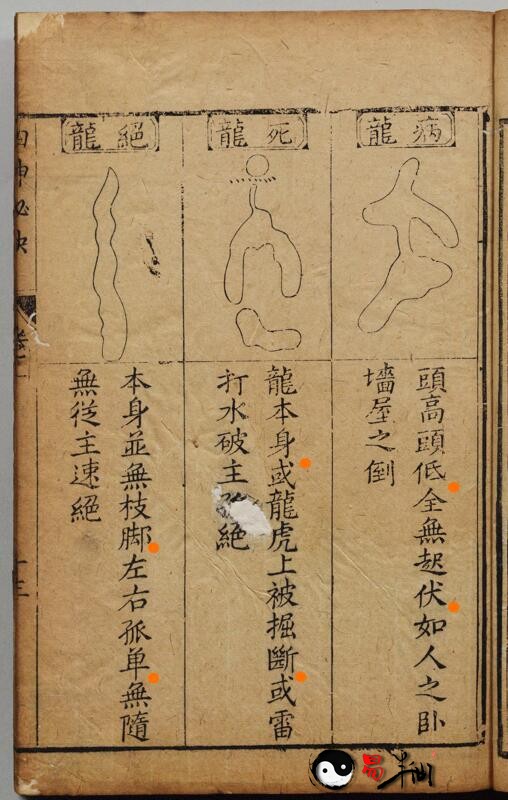 病龍
頭高頭低全無起伏如人之卧
墻屋之倒
死龍
龍本身或龍虎上被掘斷或雷
打水破主絕
絕龍
本身並無枝脚左右孤单無隨
無從主速絕
四神必決
卷
十三
易